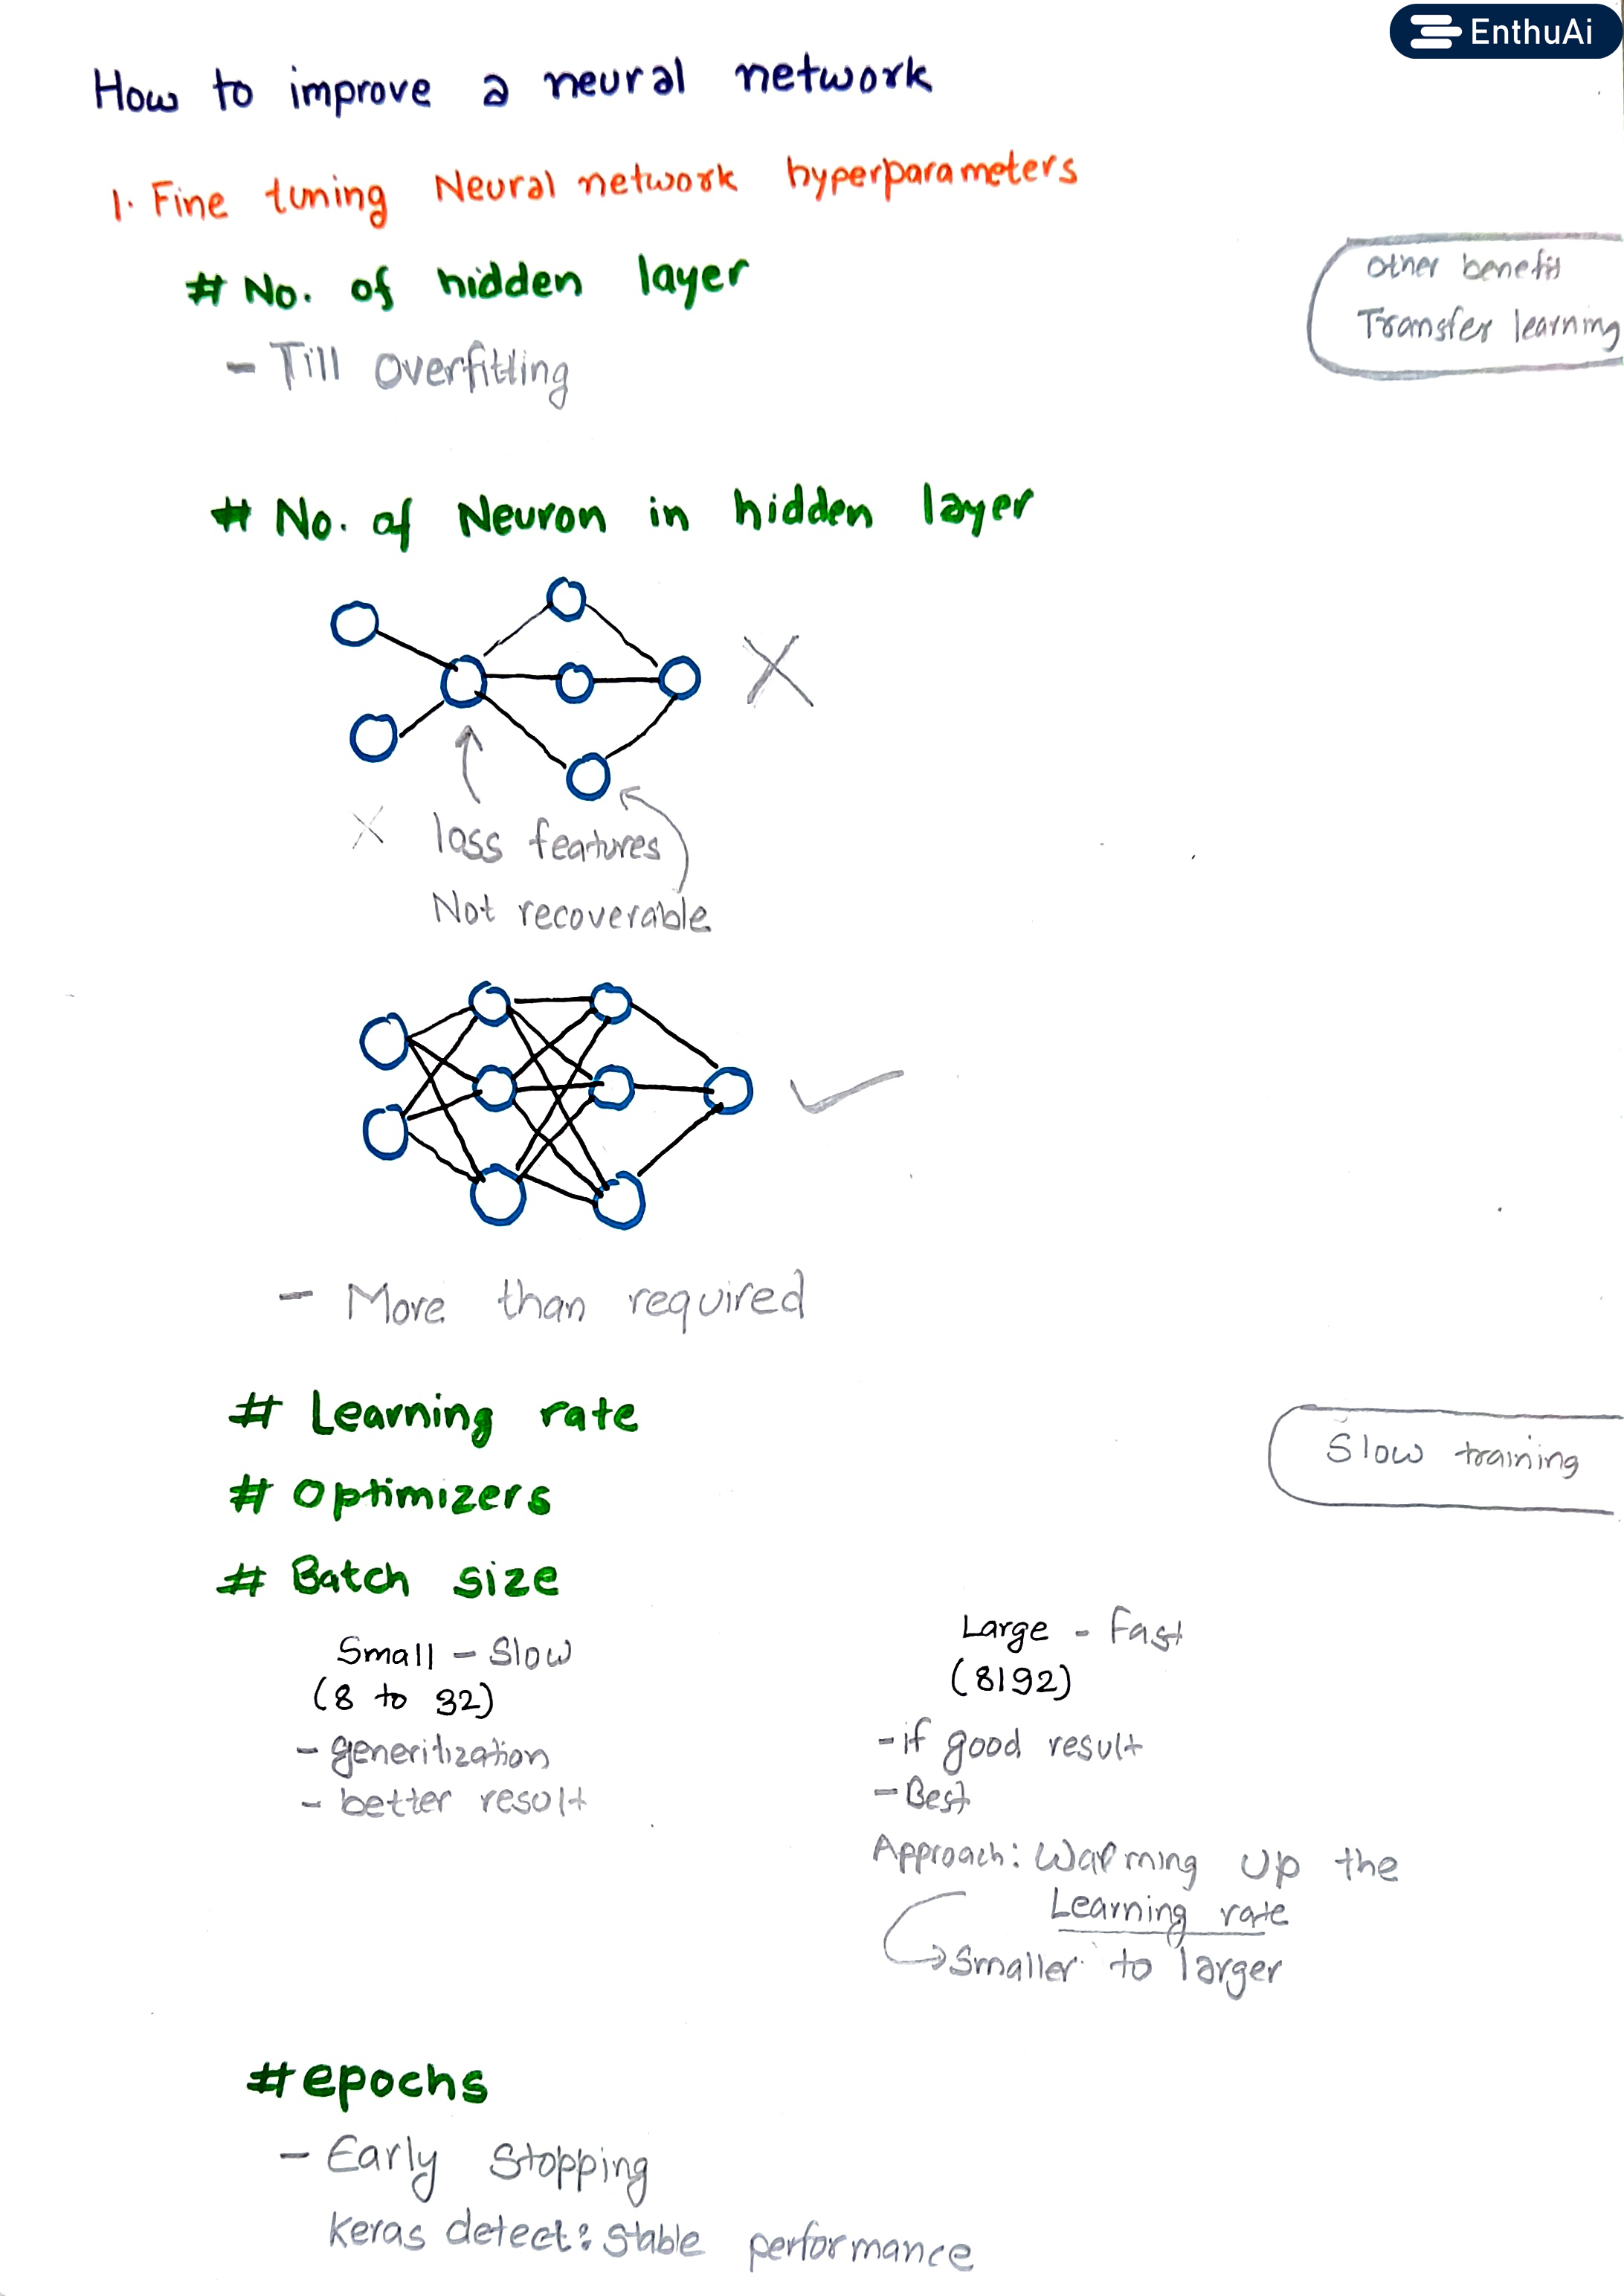 EnthuAi
How to improve a neural network
1. Fine tuning Neural network hyperparameters
# No. of hidden layer
other benefit
Transfer learning
- Till Overfitting
# No. of Neuron in hidden layer
X
X loss features
Not recoverable
- More than required
# Learning rate
Slow training
# Optimizers
# Batch size
Small - Slow
(8 to 32)
- generitization
- better result
Large - Fast
(8192)
- if good result
- Best
Approach: Warming up the
Learning rate
Smaller to larger
# epochs
- Early Stopping
keras detect: Stable performance